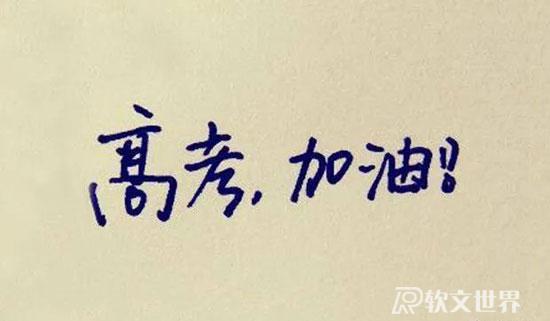 高考,加油!!
软文世界